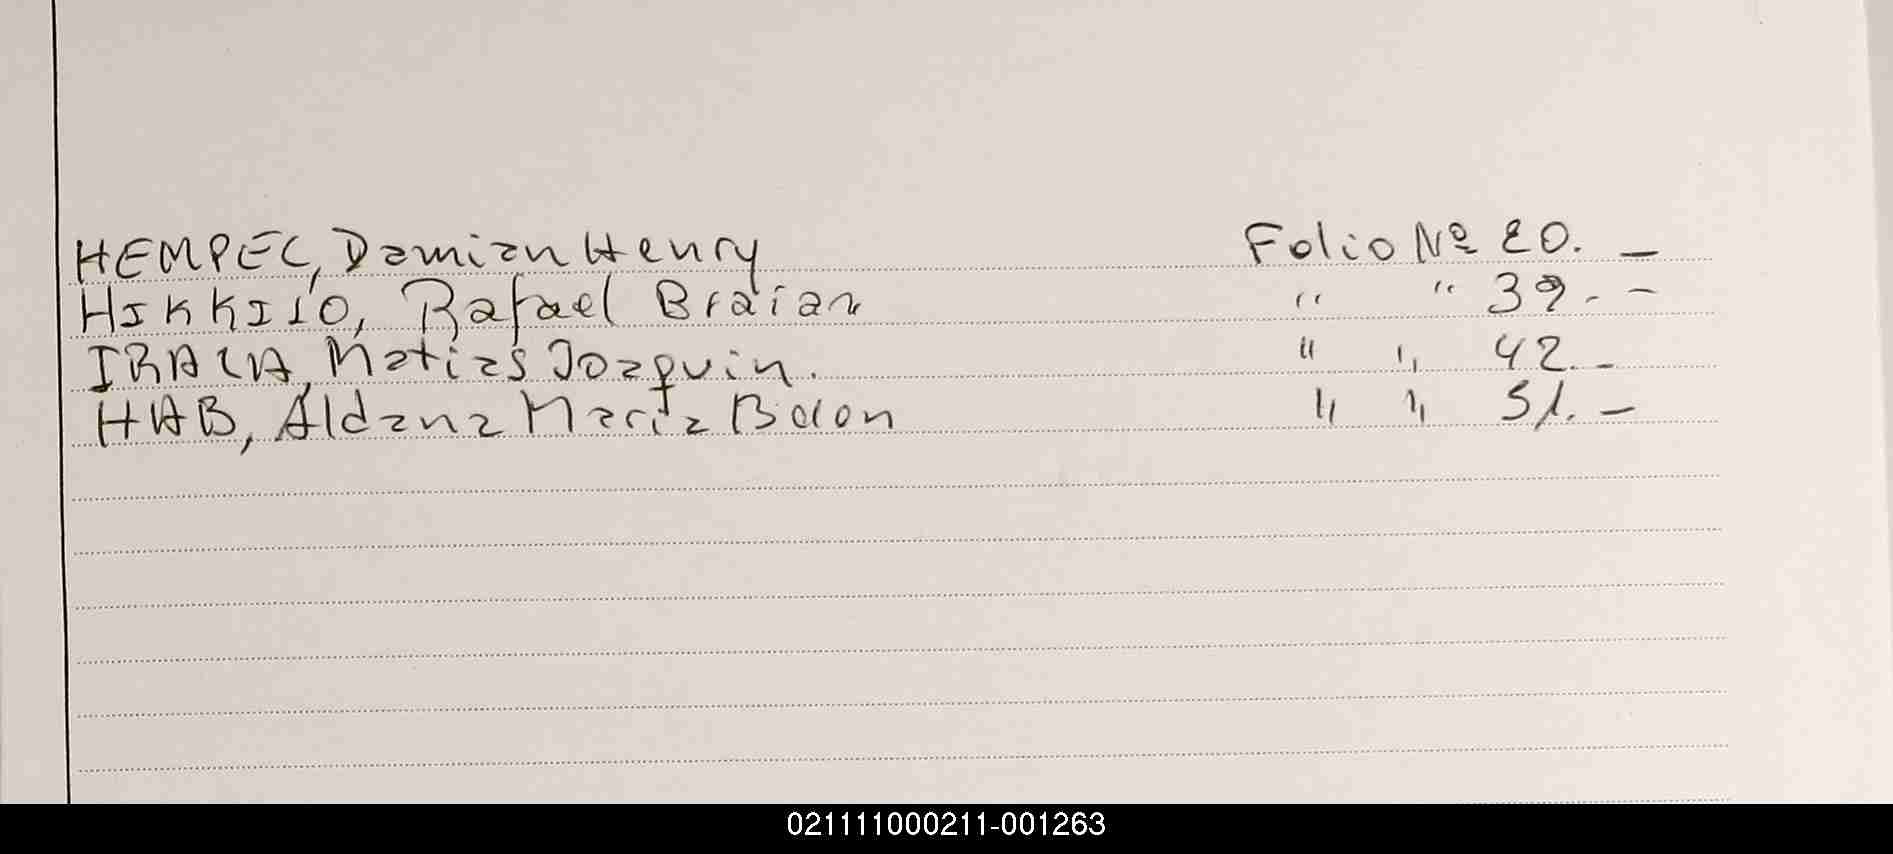 HEMPEL, Damian Henry Folio Nº 20. –
HIKKILO, Rafael Braian " " 39. –
IRALA, Matias Joaquin. " " 42. –
HAB, Aldana Maria Belon " " 51. –
021111000211-001263